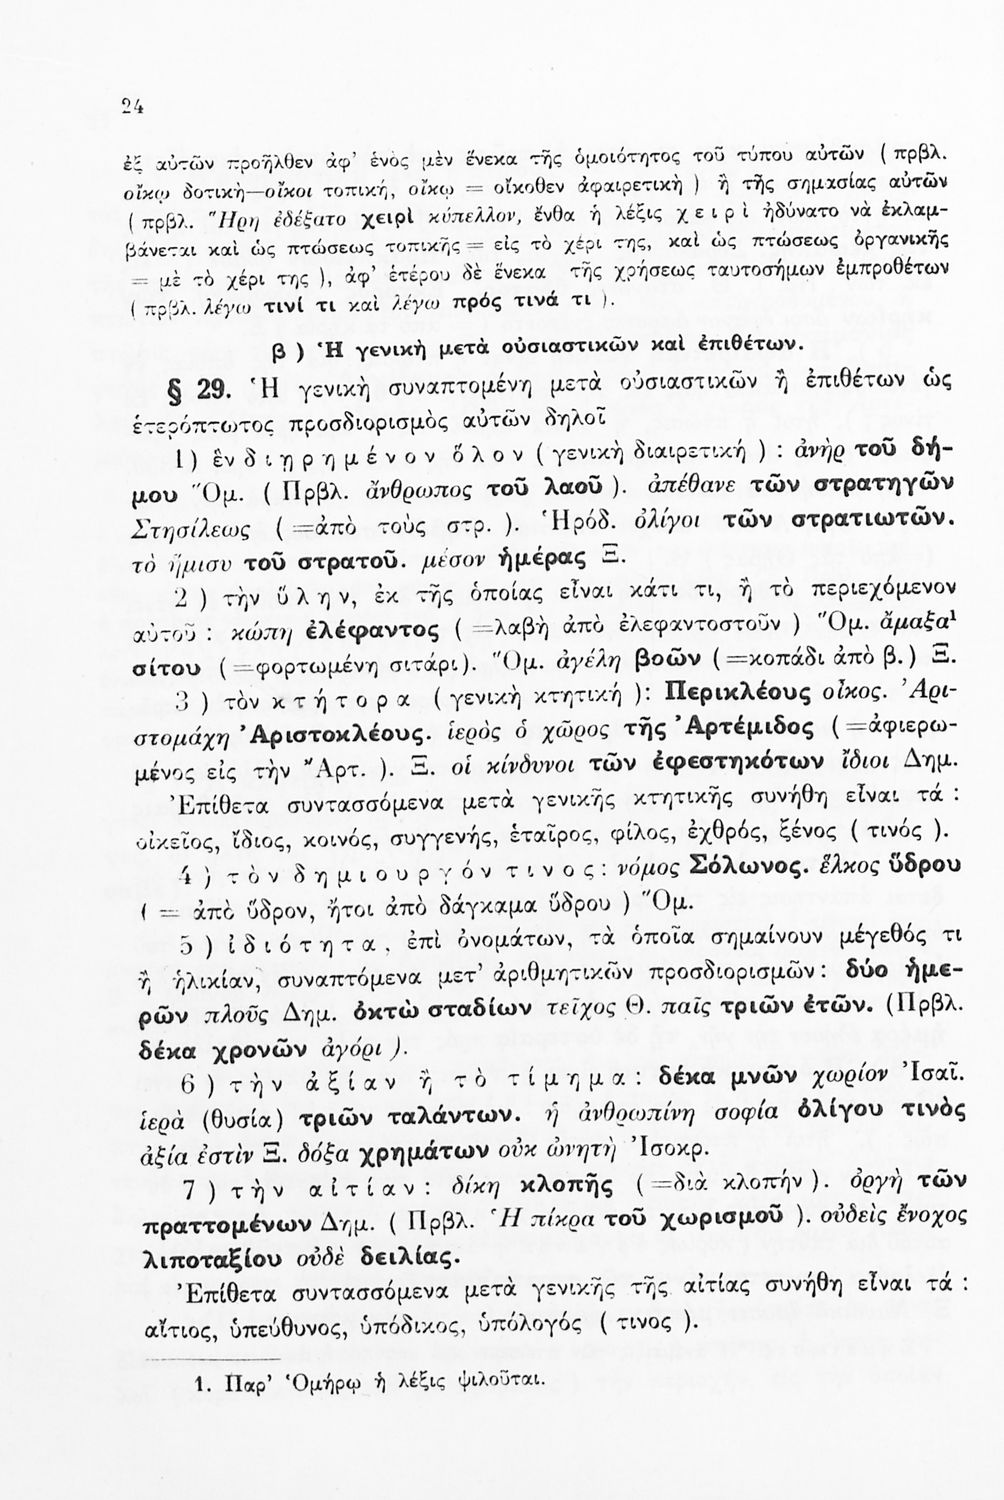 24
ἐξ αὐτῶν προῆλθεν ἀφ’ ἑνὸς μὲν ἕνεκα τῆς ὁμοιότητος τοῦ τύπου αὐτῶν ( πρβλ.
οἴκῳ δοτικὴ—οἴκοι τοπική, οἴκῳ = οἴκοθεν ἀφαιρετικὴ ) ἢ τῆς σημασίας αὐτῶν
( πρβλ. Ἥρη ἐδέξατο χειρὶ κύπελλον, ἔνθα ἡ λέξις χ ε ι ρ ὶ ἠδύνατο νὰ ἐκλαμ-
βάνεται καὶ ὡς πτώσεως τοπικῆς = εἰς τὸ χέρι της, καὶ ὡς πτώσεως ὀργανικῆς
= μὲ τὸ χέρι της ), ἀφ’ ἑτέρου δὲ ἕνεκα τῆς χρήσεως ταυτοσήμων ἐμπροθέτων
( πρβλ. λέγω τινί τι καὶ λέγω πρός τινά τι ).
β ) Ἡ γενικὴ μετὰ οὐσιαστικῶν καὶ ἐπιθέτων.
§ 29. Ἡ γενικὴ συναπτομένη μετὰ οὐσιαστικῶν ἢ ἐπιθέτων ὡς
ἑτερόπτωτος προσδιορισμὸς αὐτῶν δηλοῖ
1) ἓν δ ι ῃ ρ η μ έ ν ο ν ὅ λ ο ν ( γενικὴ διαιρετική ) : ἀνὴρ τοῦ δή-
μου Ὅμ. ( Πρβλ. ἄνθρωπος τοῦ λαοῦ ). ἀπέθανε τῶν στρατηγῶν
Στησίλεως ( =ἀπὸ τοὺς στρ. ). Ἡρόδ. ὀλίγοι τῶν στρατιωτῶν.
τὸ ἥμισυ τοῦ στρατοῦ. μέσον ἡμέρας Ξ.
2 ) τὴν ὕ λ η ν, ἐκ τῆς ὁποίας εἶναι κάτι τι, ἢ τὸ περιεχόμενον
αὐτοῦ : κώπη ἐλέφαντος ( =λαβὴ ἀπὸ ἐλεφαντοστοῦν ) Ὅμ. ἄμαξα¹
σίτου ( =φορτωμένη σιτάρι). Ὅμ. ἀγέλη βοῶν ( =κοπάδι ἀπὸ β.) Ξ.
3 ) τὸν κ τ ή τ ο ρ α ( γενικὴ κτητική ): Περικλέους οἶκος. Ἀρι-
στομάχη Ἀριστοκλέους. ἱερὸς ὁ χῶρος τῆς Ἀρτέμιδος ( =ἀφιερω-
μένος εἰς τὴν Ἄρτ. ). Ξ. οἱ κίνδυνοι τῶν ἐφεστηκότων ἴδιοι Δημ.
Ἐπίθετα συντασσόμενα μετὰ γενικῆς κτητικῆς συνήθη εἶναι τά :
οἰκεῖος, ἴδιος, κοινός, συγγενής, ἑταῖρος, φίλος, ἐχθρός, ξένος ( τινός ).
4 ) τ ὸ ν δ η μ ι ο υ ρ γ ό ν τ ι ν ο ς : νόμος Σόλωνος. ἕλκος ὕδρου
( = ἀπὸ ὕδρον, ἤτοι ἀπὸ δάγκαμα ὕδρου ) Ὅμ.
5 ) ἰ δ ι ό τ η τ α , ἐπὶ ὀνομάτων, τὰ ὁποῖα σημαίνουν μέγεθός τι
ἢ ἡλικίαν, συναπτόμενα μετ’ ἀριθμητικῶν προσδιορισμῶν : δύο ἡμε-
ρῶν πλοῦς Δημ. ὀκτὼ σταδίων τεῖχος Θ. παῖς τριῶν ἐτῶν. (Πρβλ.
δέκα χρονῶν ἀγόρι ).
6 ) τ ὴ ν ἀ ξ ί α ν ἢ τ ὸ τ ί μ η μ α : δέκα μνῶν χωρίον Ἰσαῖ.
ἱερὰ (θυσία) τριῶν ταλάντων. ἡ ἀνθρωπίνη σοφία ὀλίγου τινὸς
ἀξία ἐστὶν Ξ. δόξα χρημάτων οὐκ ὠνητὴ Ἰσοκρ.
7 ) τ ὴ ν α ἰ τ ί α ν : δίκη κλοπῆς ( =διὰ κλοπήν ). ὀργὴ τῶν
πραττομένων Δημ. ( Πρβλ. Ἡ πίκρα τοῦ χωρισμοῦ ). οὐδεὶς ἔνοχος
λιποταξίου οὐδὲ δειλίας.
Ἐπίθετα συντασσόμενα μετὰ γενικῆς τῆς αἰτίας συνήθη εἶναι τά :
αἴτιος, ὑπεύθυνος, ὑπόδικος, ὑπόλογός ( τινος ).
1. Παρ’ Ὁμήρῳ ἡ λέξις ψιλοῦται.